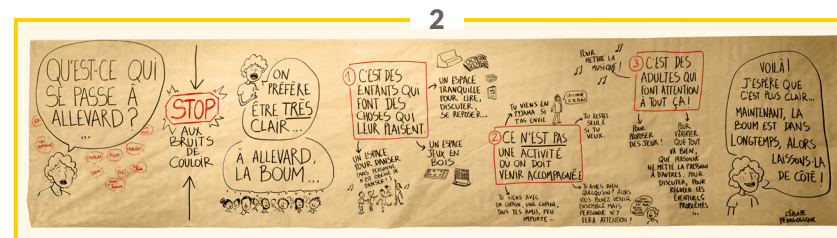 2
QU'EST-CE QUI
SE PASSE À
ALLEVARD ?
...
STOP
AUX
BRUITS
DE
COULOIR
ON
PRÉFÈRE
ÊTRE TRÈS
CLAIR...
À ALLEVARD,
LA BOUM...
1 C'EST DES
ENFANTS QUI
FONT DES
CHOSES QUI
LEUR PLAISENT.
UN ESPACE
TRANQUILLE
POUR LIRE,
DISCUTER,
SE REPOSER...
UN ESPACE
JEUX EN
BOIS
UN ESPACE
POUR DANSER
(MAIS PERSONNE
N'EST OBLIGÉ DE
DANSER !)
TU VIENS EN
PYJAMA SI
T'AS ENVIE
TU RESTES
SEUL SI
TU VEUX.
2 CE N'EST PAS
UNE ACTIVITÉ
OÙ ON DOIT
VENIR ACCOMPAGNÉ·E
TU VIENS AVEC
UN COPAIN, UNE COPINE,
TOUS TES AMIS, PEU
IMPORTE...
TU AIMES BIEN
QUELQU'UN ? ALORS
VOUS POUVEZ VENIR
ENSEMBLE MAIS
PERSONNE N'Y
FERA ATTENTION !
POUR
METTRE LA
MUSIQUE !
3 C'EST DES
ADULTES QUI
FONT ATTENTION
À TOUT ÇA !
POUR
PROPOSER
DES JEUX !
POUR
VÉRIFIER
QUE TOUT
VA BIEN,
QUE PERSONNE
NE METTE LA PRESSION
À D'AUTRES, POUR
DISCUTER, POUR
RÉGULER LES
ÉVENTUELS
PROBLÈMES
...
VOILÀ !
J'ESPÈRE QUE
C'EST PLUS CLAIR...
MAINTENANT, LA
BOUM EST DANS
LONGTEMPS, ALORS
LAISSONS-LA
DE CÔTÉ !
L'ÉQUIPE
PÉDAGOGIQUE